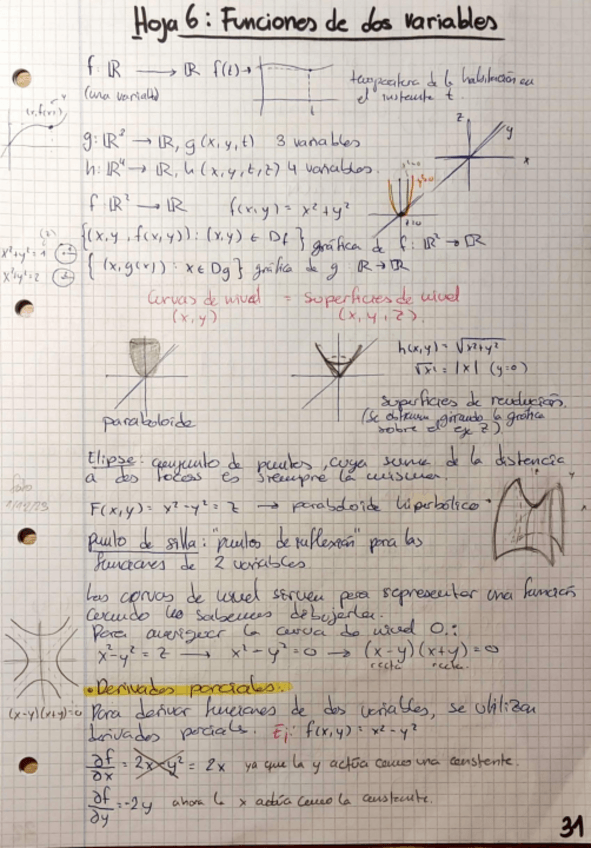 Hoja 6: Funciones de dos variables
f: ℝ → ℝ f(t) →
(una variable)
temperatura de la habitación en
el instante t.
t
(x, f(x))
g: ℝ³ → ℝ, g(x, y, t) 3 variables
h: ℝ⁴ → ℝ, h(x, y, t, z) 4 variables.
z
y
x
f ℝ² → ℝ f(x,y) = x²+y²
{(x, y, f(x,y)) : (x,y) ∈ Df} gráfica de f: ℝ² → ℝ
x²+y²=1
x²+y²=2
{(x, g(x)) : x ∈ Dg} gráfica de g ℝ → ℝ
Curvas de nivel = Superficies de nivel
(x, y) (x, y, z)
h(x,y) = √x²+y²
√x² = |x| (y=0)
paraboloide
superficies de revolución.
(se obtienen girando la gráfica
sobre el eje z)
Elipse: conjunto de puntos, cuya suma de la distancia
a dos focos es siempre la misma.
F(x,y) = x²-y² = z → paraboloide hiperbólico
punto de silla: "puntos de inflexión" para las
funciones de 2 variables
Las curvas de nivel sirven para representar una función
cuando no sabemos dibujarla.
Para averiguar la curva de nivel 0.:
x²-y² = z → x²-y² = 0 → (x-y)(x+y) = 0
recta recta.
• Derivadas parciales.
(x-y)(x+y)=0
Para derivar funciones de dos variables, se utilizan
derivadas parciales. Ej: f(x,y) = x²-y²
∂f/∂x = 2x-y² = 2x ya que la y actúa como una constante.
∂f/∂y = -2y ahora la x actúa como la constante.
31